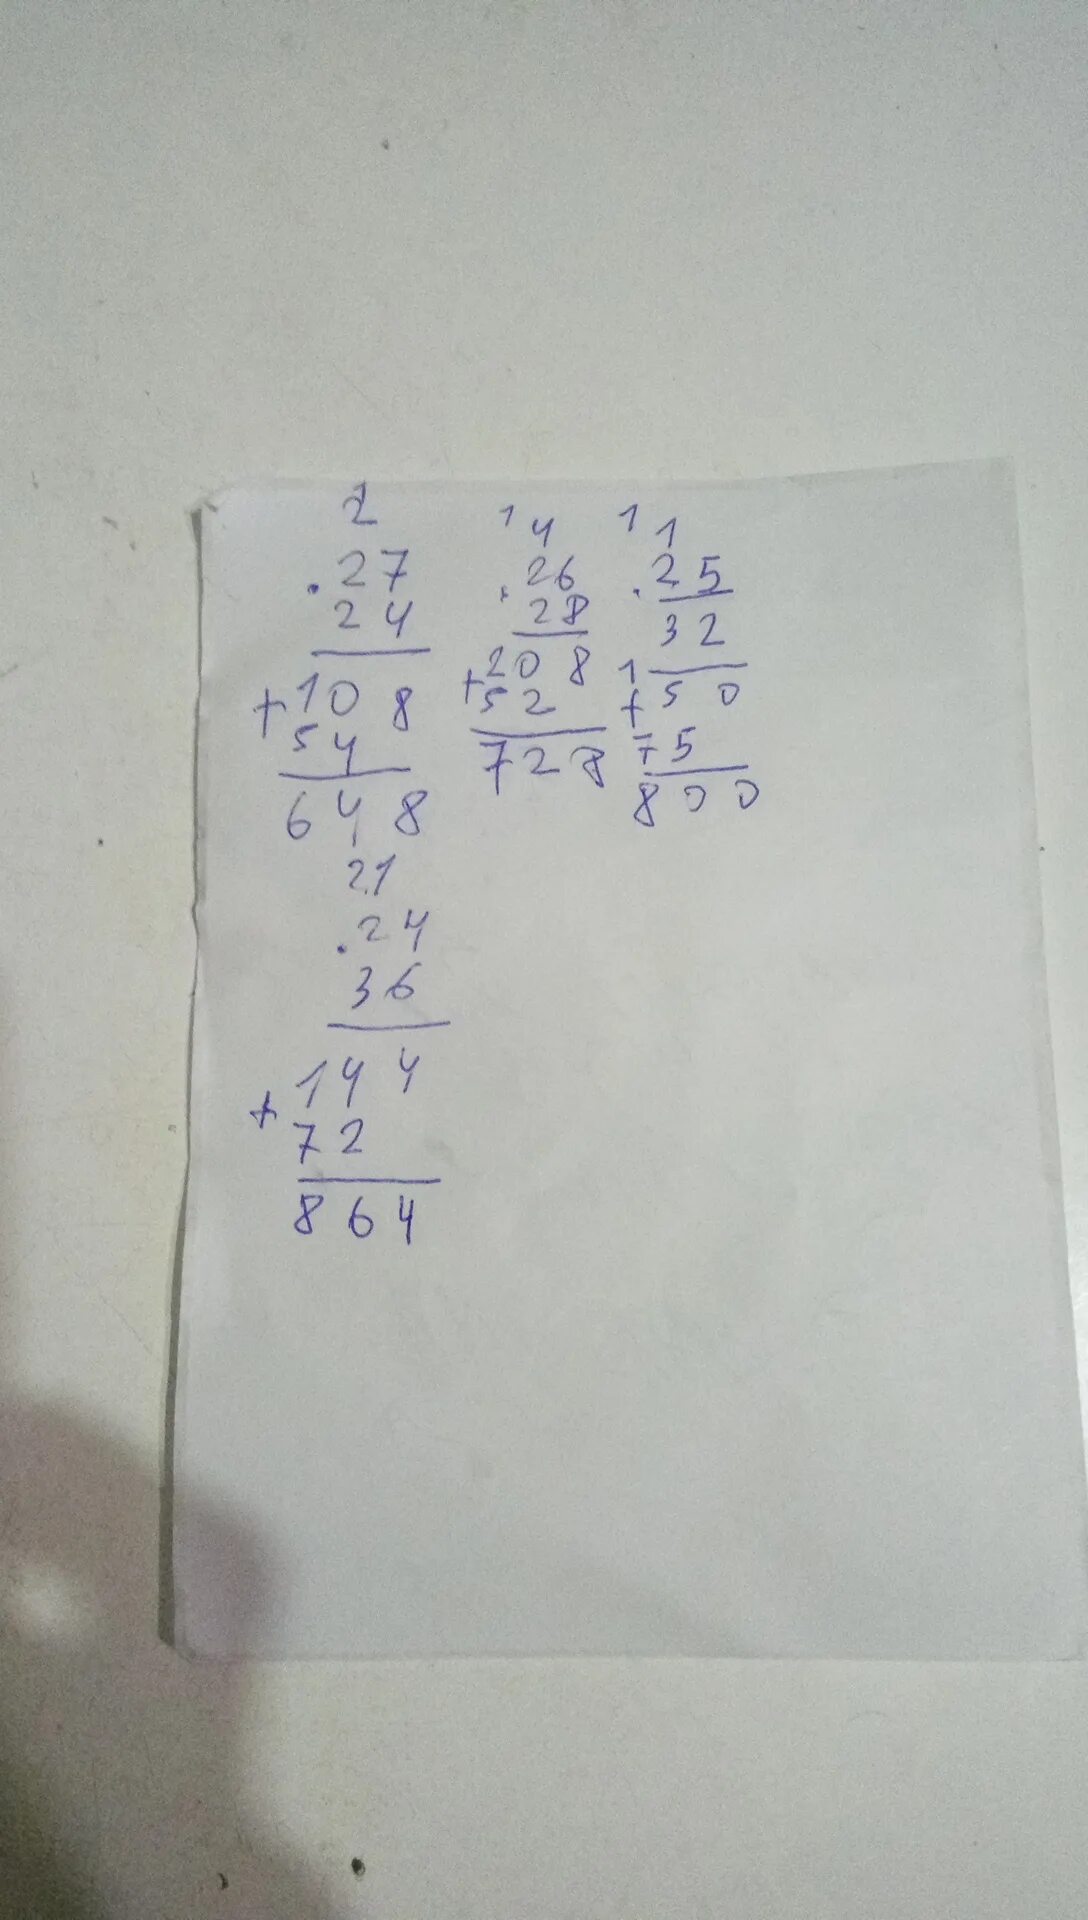 2
. 27
24
+ 10 8
54
6 4 8
1 4
. 26
28
+ 20 8
52
728
1 1
. 25
32
1 5 0
+
75
800
21
. 24
36
+ 144
72
864